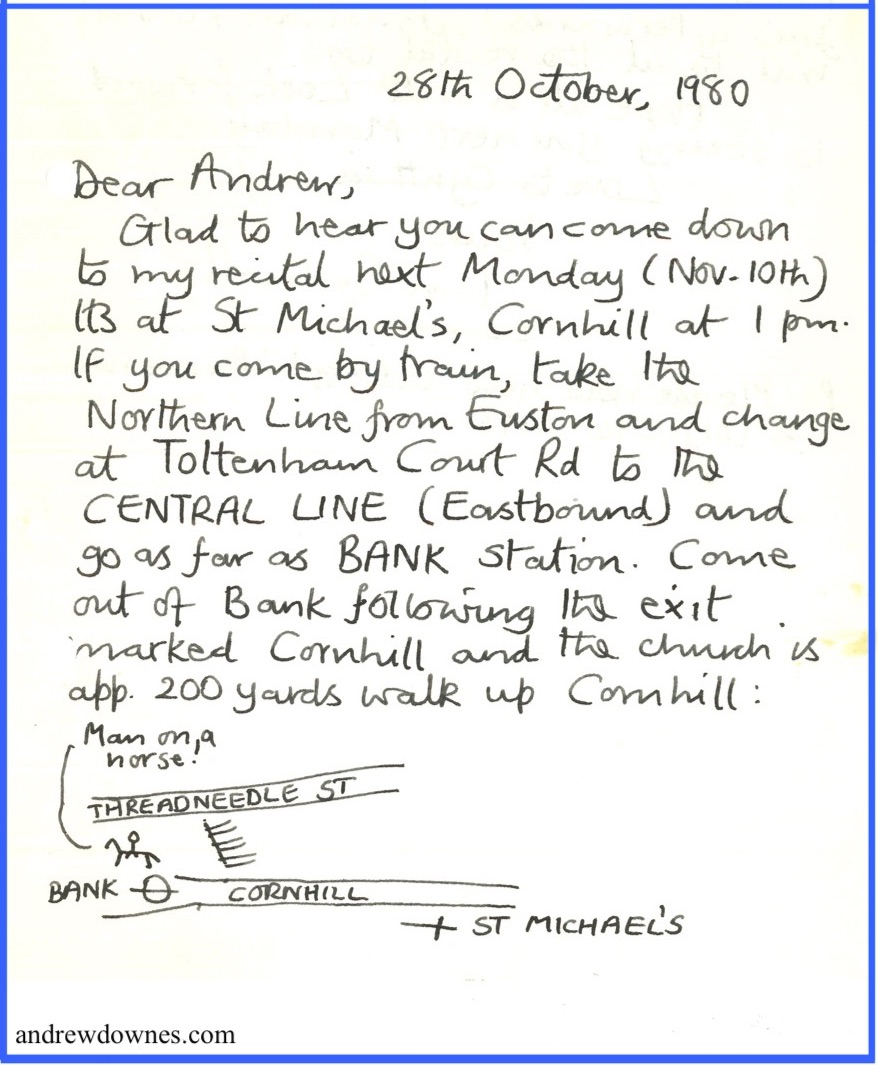 28th October, 1980
Dear Andrew,
Glad to hear you can come down
to my recital next Monday (Nov. 10th)
Its at St Michael's, Cornhill at 1 pm.
If you come by train, take the
Northern Line from Euston and change
at Tottenham Court Rd to the
CENTRAL LINE (Eastbound) and
go as far as BANK station. Come
out of Bank following the exit
marked Cornhill and the church is
app. 200 yards walk up Cornhill:
Man on a
horse!
THREADNEEDLE ST
BANK
CORNHILL
ST MICHAEL'S
andrewdownes.com